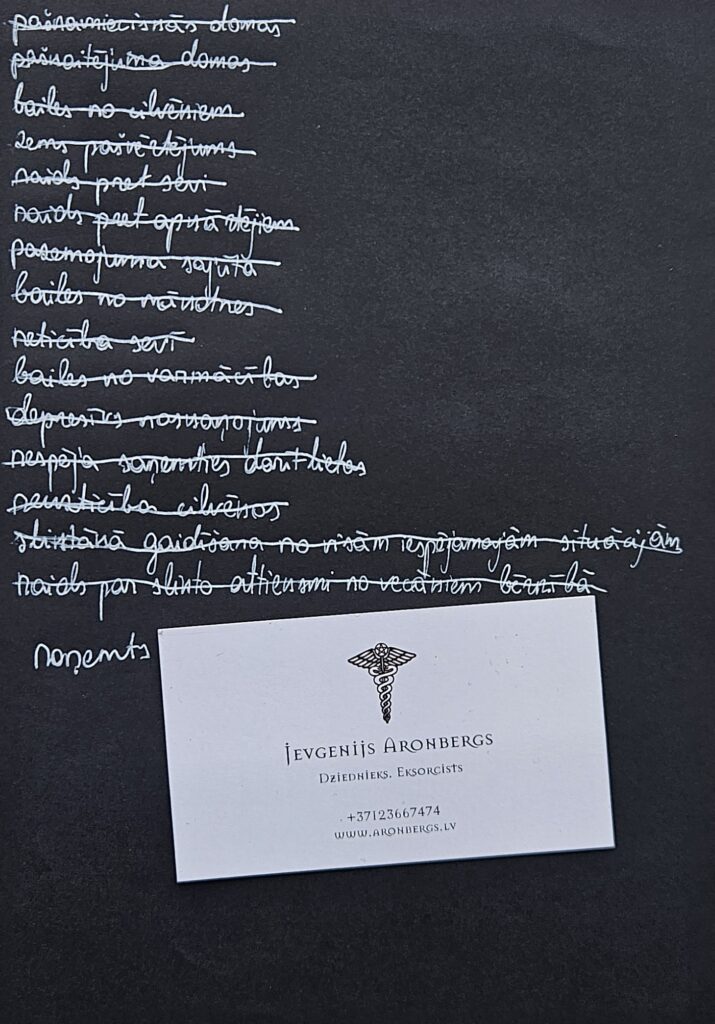 pašnāmiecisnās domas
pašnaitējuma domas
bailes no cilvēniem
zems pašvērtējums
naids pret sevi
naids pret apnārtējiem
pazemojuma sajūta
bailes no nāndtnes
neticība sevī
bailes no varmācības
depresīvs nosnaņojums
nespēja saņemties darīt lietas
neuzticība cilvēnos
sliktānā gaidīšana no visām iespējamajām situācijām
naids par slinto attiensmi no vecāniem bērnībā
noņemts
Jevgenijs Aronbergs
Dziednieks. Eksorcists
+37123667474
www.aronbergs.lv